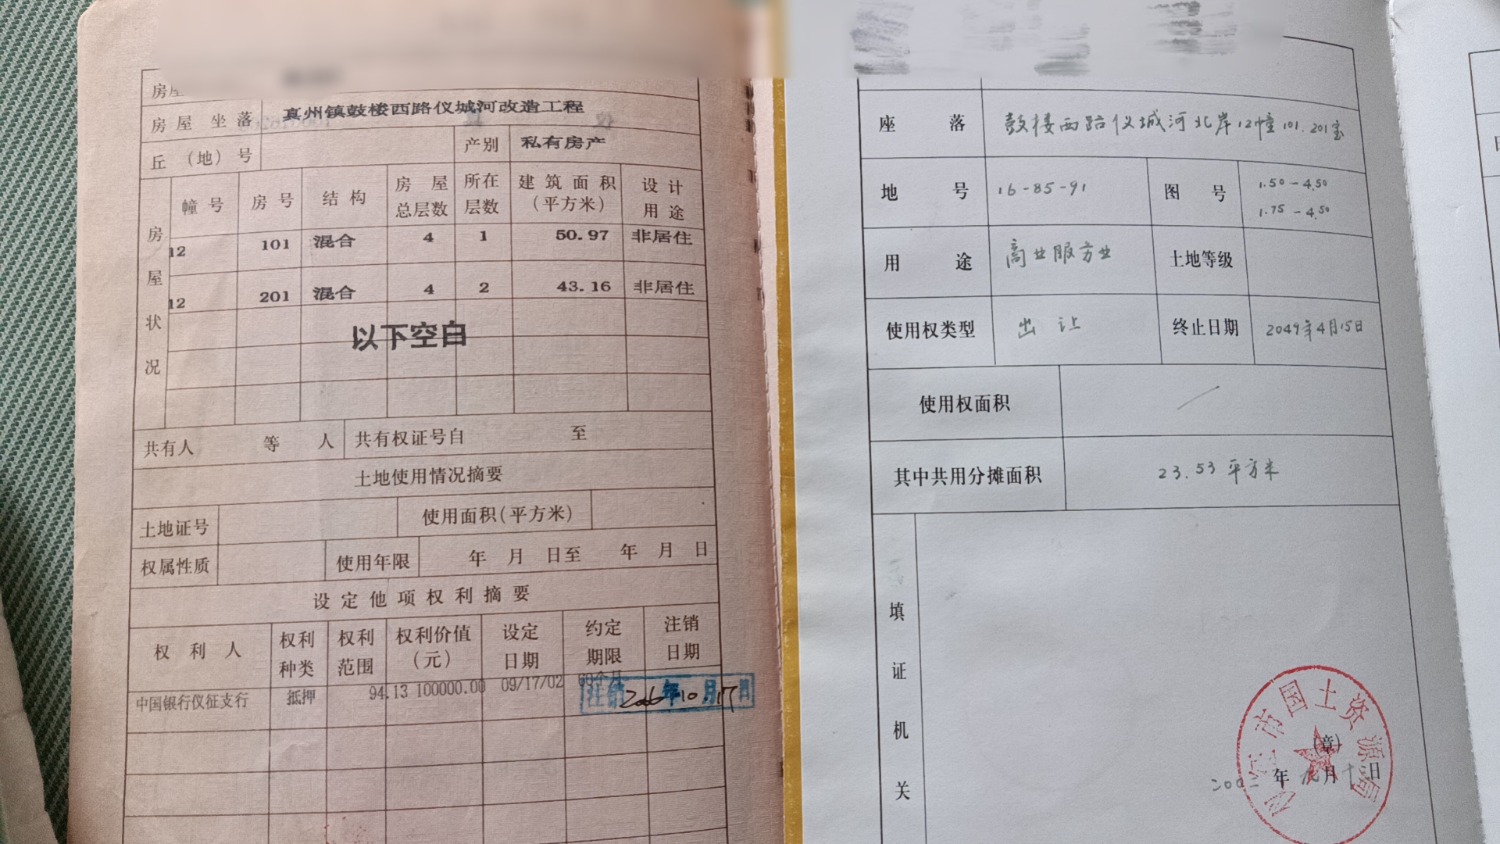 房屋坐落 真州镇鼓楼西路仪城河改造工程
丘（地）号 产别 私有房产
房屋状况
幢号 房号 结构 房屋总层数 所在层数 建筑面积（平方米） 设计用途
12 101 混合 4 1 50.97 非居住
12 201 混合 4 2 43.16 非居住
以下空白
共有人 等 人 共有权证号自 至
土地使用情况摘要
土地证号 使用面积（平方米）
权属性质 使用年限 年 月 日至 年 月 日
设定他项权利摘要
权利人 权利种类 权利范围 权利价值（元） 设定日期 约定期限 注销日期
中国银行仪征支行 抵押 94.13 100000.00 09/17/02 60个月
注销 2006年10月17日
座落 鼓楼西路仪城河北岸12幢101.201室
地号 16-85-91 图号 1.50-4.50
1.75-4.50
用途 商业服务业 土地等级
使用权类型 出让 终止日期 2049年4月15日
使用权面积
其中共用分摊面积 23.53平方米
填证机关
市国土资源局
（章）
年 月 日